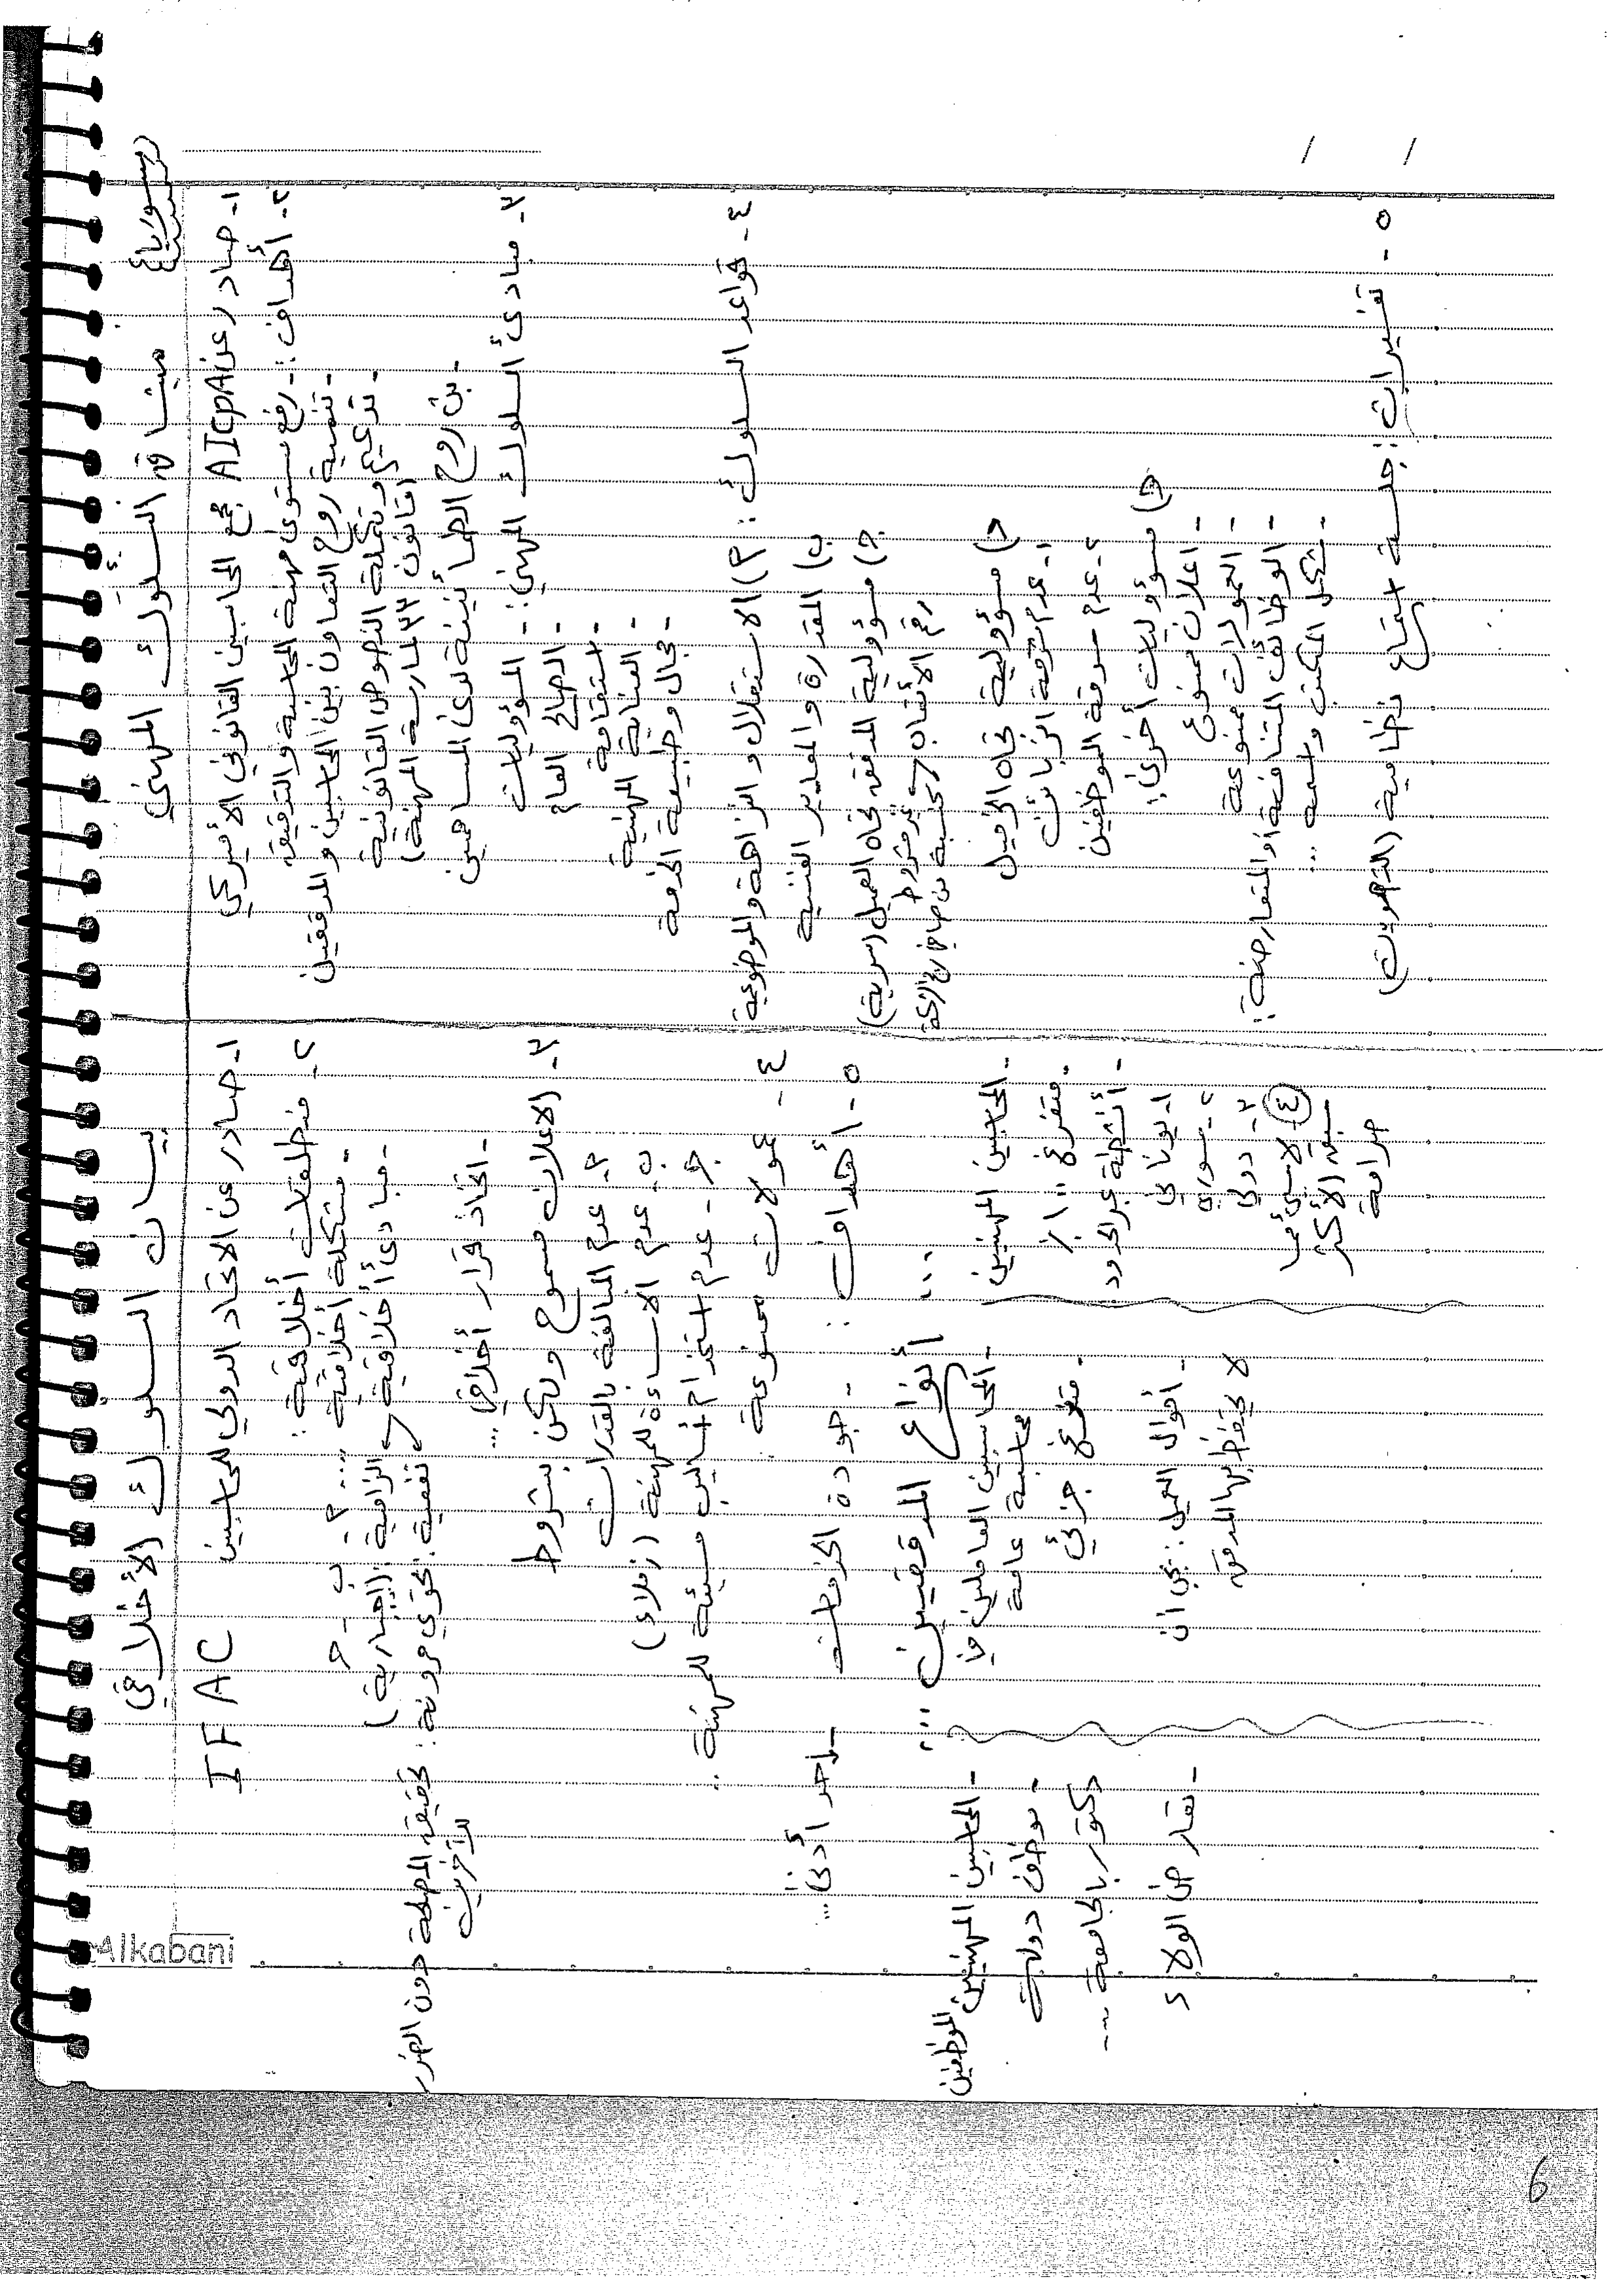 ميثاق السلوك المهني
١- صادر عن AICPA مجمع المحاسبين القانوني الأميركي
٢- أهداف: - رفع مستوى مهنة المحاسبة والتدقيق
- تنمية روح التعاون بين المحاسبين والمدققين
- تدعيم وتكملة النصوص القانونية
(قانون ٣٣ لممارسة المهنة)
- بث روح الطمأنينة لدى المساهمين
٣- مبادئ السلوك المهني: - المسؤوليات
- الصالح العام
- استقامة
- العناية المهنية
- مجال وطبيعة الخدمة
٤- قواعد السلوك: أ) الاستقلال والنزاهة والموضوعية
ب) المقدرة والمعايير الفنية
ج) مسؤولية المدقق تجاه العميل (سرية)
رقم الأتعاب غير مشروط
د) مسؤولية تجاه الزميل
١- عدم سرقة الزبائن
٢- عدم سرقة الموظفين
هـ) مسؤوليات أخرى:
- اعلان ممنوع
- العمولات ممنوعة
- الوظائف المتنافسة أو المتعارضة:
- شكل المكتب واسمه ...
٥- تفسيرات: جلسة استماع نظامية (التصويت)
بيان السلوك الأخلاقي
١- صادر عن الاتحاد الدولي للمحاسبين IFAC
٢- منطلقات أخلاقية:
- مشكلة أخلاقية .... أ - ب - ج
- مبادئ أخلاقية الزامية: (إجبارية)
نفعية: تحوي مرونة: تحقيق المصلحة دون الضرر
للآخرين
- اتخاذ قرار أخلاقي ...
٣- الاعلان مسموح ولكن بشروط
أ- عدم المبالغة بالقدرات
ب- عدم الاساءة للمهنة (زملاء)
ج- عدم استخدام أساليب مسيئة للمهنة ..
٤- عمولات ممنوعة
٥- أهداف: - جودة الخدمات - أجر أدنى ...
... أنواع المدققين ...
- المحاسبين المهنيين
- متفرغ ١٠٠٪
- أنشطة عبر الحدود
١- يوناني
٢- سوري
٣- دولي
٤ لا سيما
يسبق الأكثر
صرامة
- المحاسبين العاملين في
محاسبة عامة
- متفرغ جزئي
- أموال العميل: يجب ان
لا يحتفظ بها المدقق
- المحاسبين المهنيين الموظفين
- موظف دولة
دكتور بالجامعة ....
- تعارض الولاء
Alkabani
6